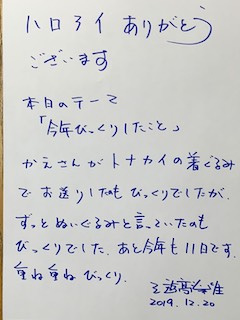 ハロアイ ありがとう
ございます
本日のテーマ
「今年びっくりしたこと」
かえさんがトナカイの着ぐるみ
でお送りしたのもびっくりでしたが、
ずっとぬいぐるみと言っていたのも
びっくりでした。あと今年も11日です。
重ね重ねびっくり。
三遊亭
2019.12.20